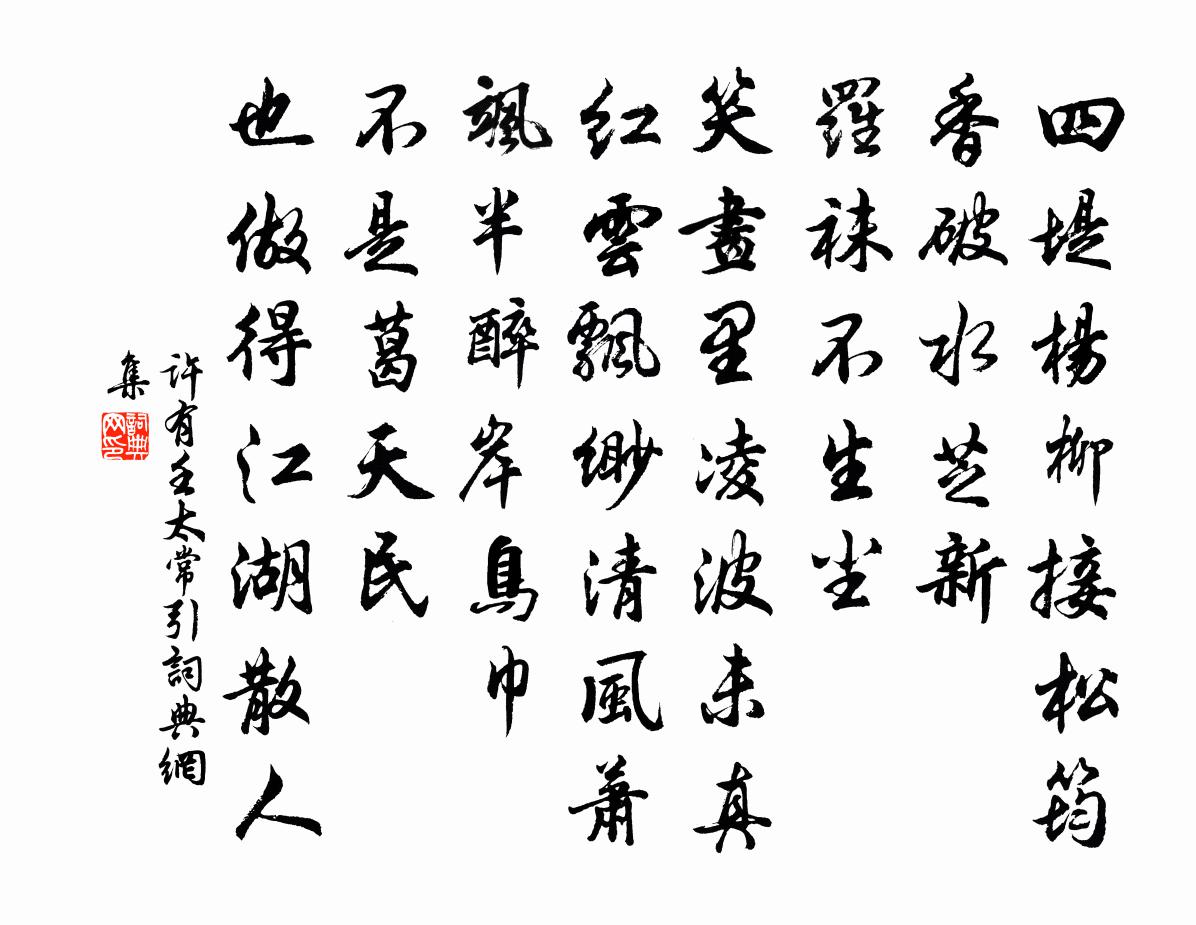 四堤楊柳接松筠
香破水芝新
羅袜不生尘
笑畫里凌波未真
紅雲飄緲清風蕭
颯半醉岸烏巾
不是葛天民
也做得江湖散人
許有壬太常引詞典網
集
詞典网印